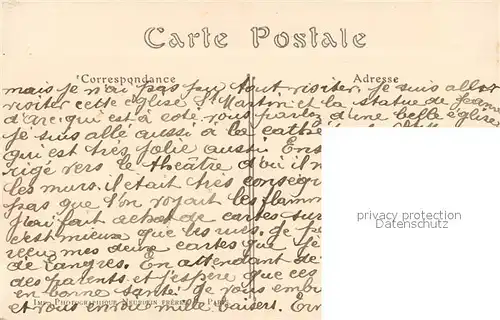 Carte Postale
Correspondance Adresse
mais je n'ai pas pu tout visiter. je suis allé
visiter cette église St Martin et la statue de Jeanne
d'Arc qui est à coté vous parlez d'une belle église
je suis allé aussi à la cathé
qui est très jolie aussi Ens
rigé vers le théâtre d'où il n
les murs. il était très conséq
pas que l'on voyait les flamm
J'ai fait achat de cartes sur
c'est mieux que les vues. Je p
reçu mes deux cartes que je
de Langres. En attendant de
des parents et j'espère que ces
en bonne santé je vous emb
et vous envoie mille baisers. Ern
privacy protection
Datenschutz
Imp. Photographique Neurdein Frères Paris